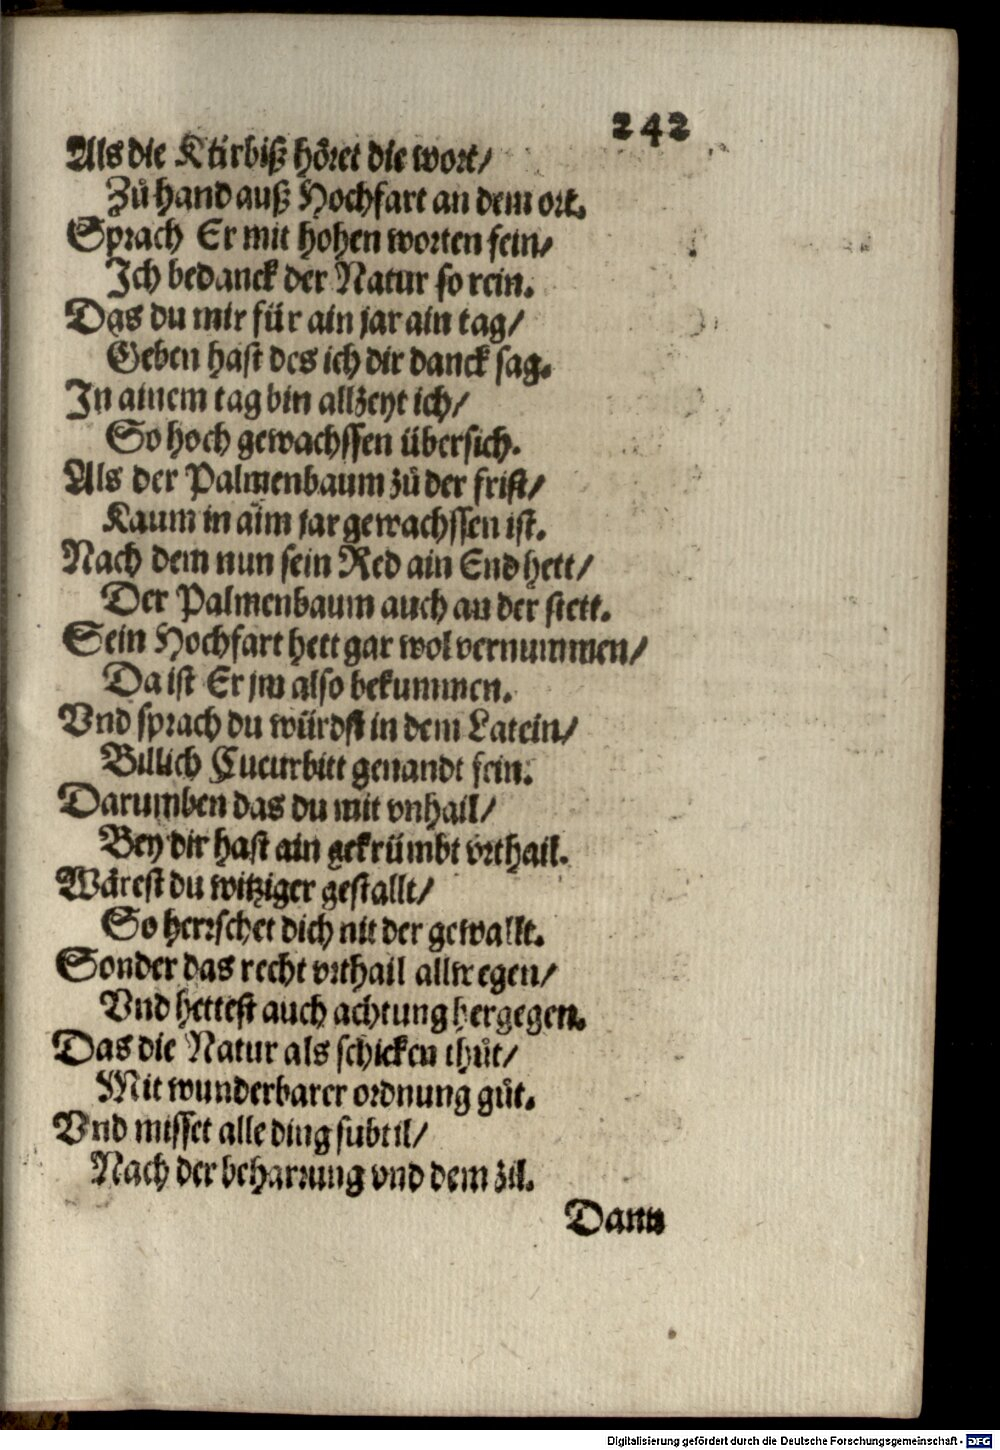 242
Als die Kürbiß höret die wort/
Zů hand auß Hochfart an dem ort.
Sprach Er mit hohen worten fein/
Ich bedanck der Natur so rein.
Das du mir für ain jar ain tag/
Geben hast des ich dir danck sag.
In ainem tag bin allzeyt ich/
So hoch gewachssen übersich.
Als der Palmenbaum zů der frist/
Kaum in aim jar gewachssen ist.
Nach dem nun sein Red ain End hett/
Der Palmenbaum auch an der stett.
Sein Hochfart hett gar wol vernummen/
Da ist Er jm also bekummen.
Vnd sprach du würdst in dem Latein/
Billich Cucurbitt genandt sein.
Darumben das du mit vnhail/
Bey dir hast ain gekrümbt vrthail.
Wärest du witziger gestallt/
So herrschet dich nit der gewallt.
Sonder das recht vrthail allwegen/
Vnd hettest auch achtung hergegen.
Das die Natur als schicken thůt/
Mit wunderbarer ordnung gůt.
Vnd misset alle ding subtil/
Nach der beharrung vnd dem zil.
Dann
Digitalisierung gefördert durch die Deutsche Forschungsgemeinschaft - DFG